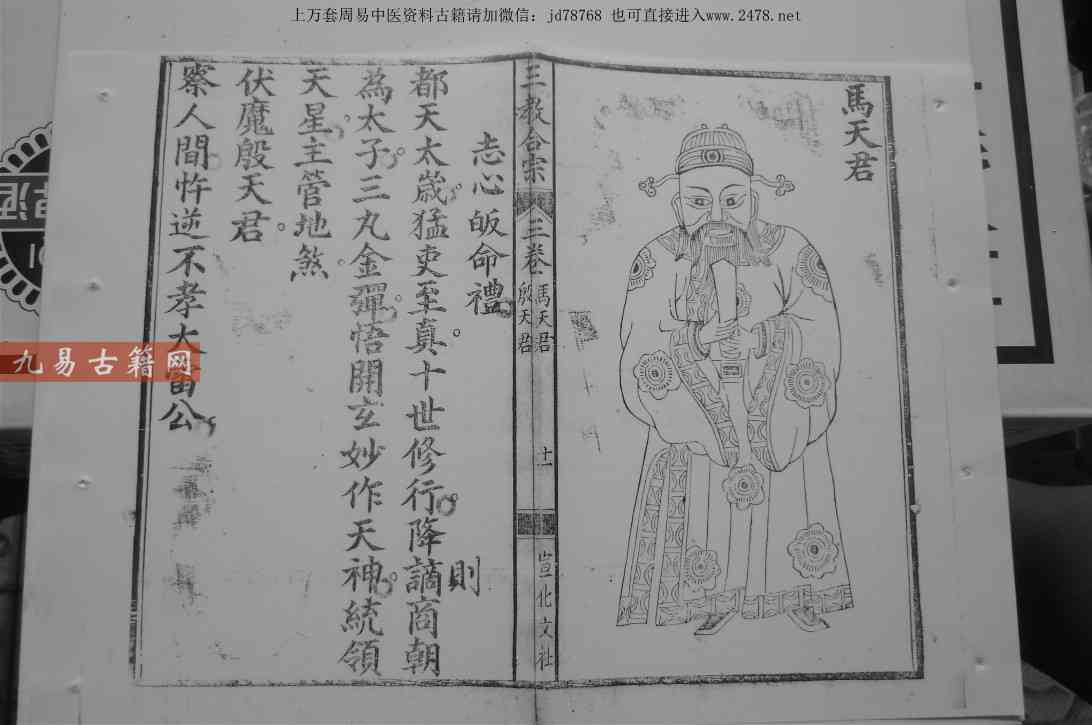 上万套周易中医资料古籍请加微信：jd78768 也可直接进入www.2478.net
馬天君
三教合宗
三卷
馬天君
殷天君
十一
宣化文社
志心皈命禮。
則
都天太歲。猛吏至真。十世修行。降謫商朝
為太子。三丸金彈。悟開玄妙作天神。統領
天星。主管地煞。
伏魔殷天君。
察人間忤逆不孝大雷公。
九易古籍网